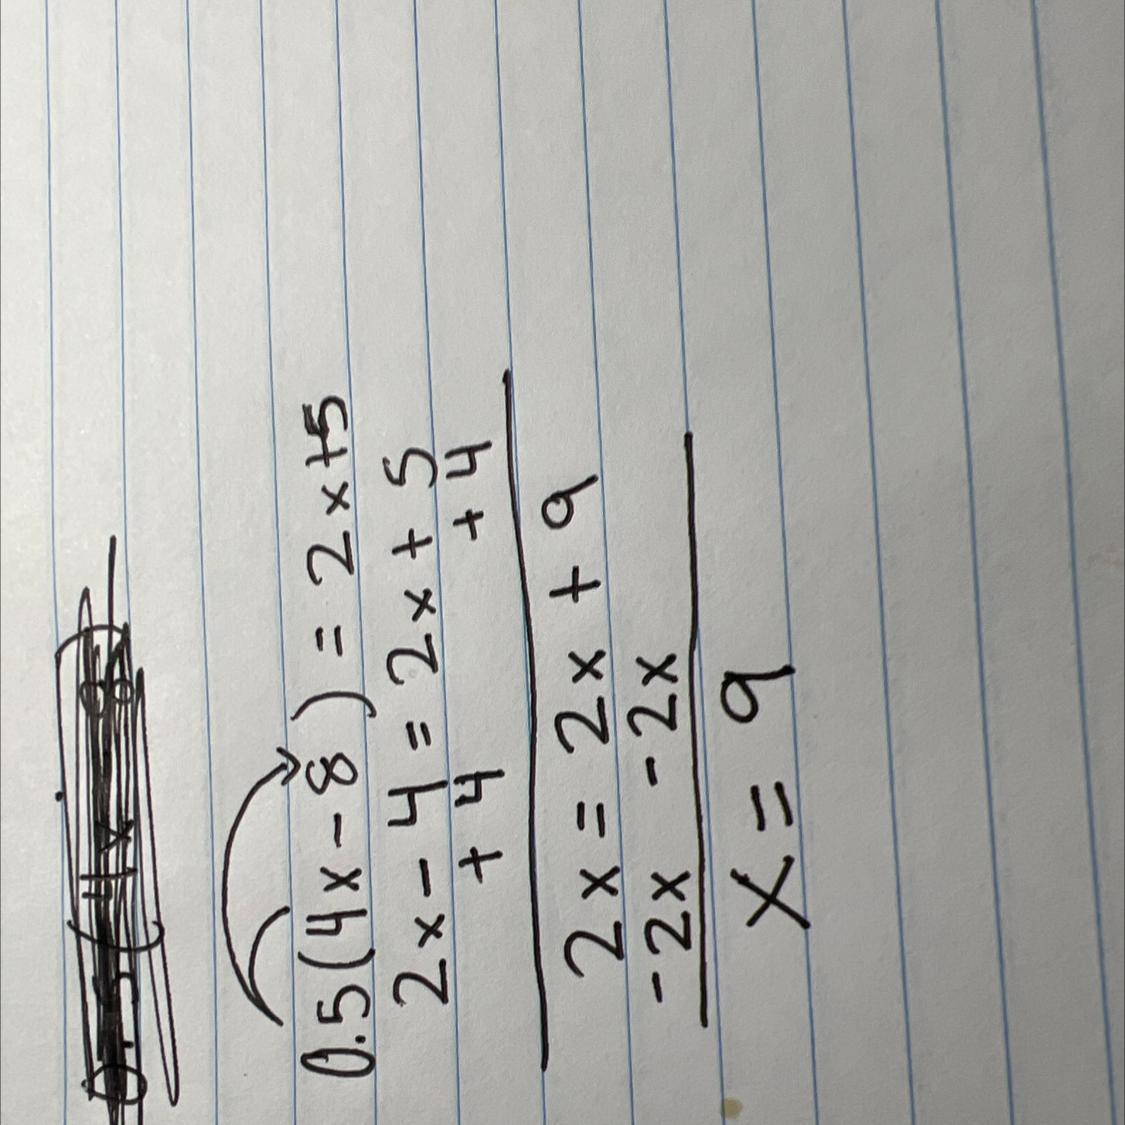 0.5(4x-8) = 2x+5
2x - 4 = 2x + 5
+4 +4
2x = 2x + 9
-2x -2x
x = 9